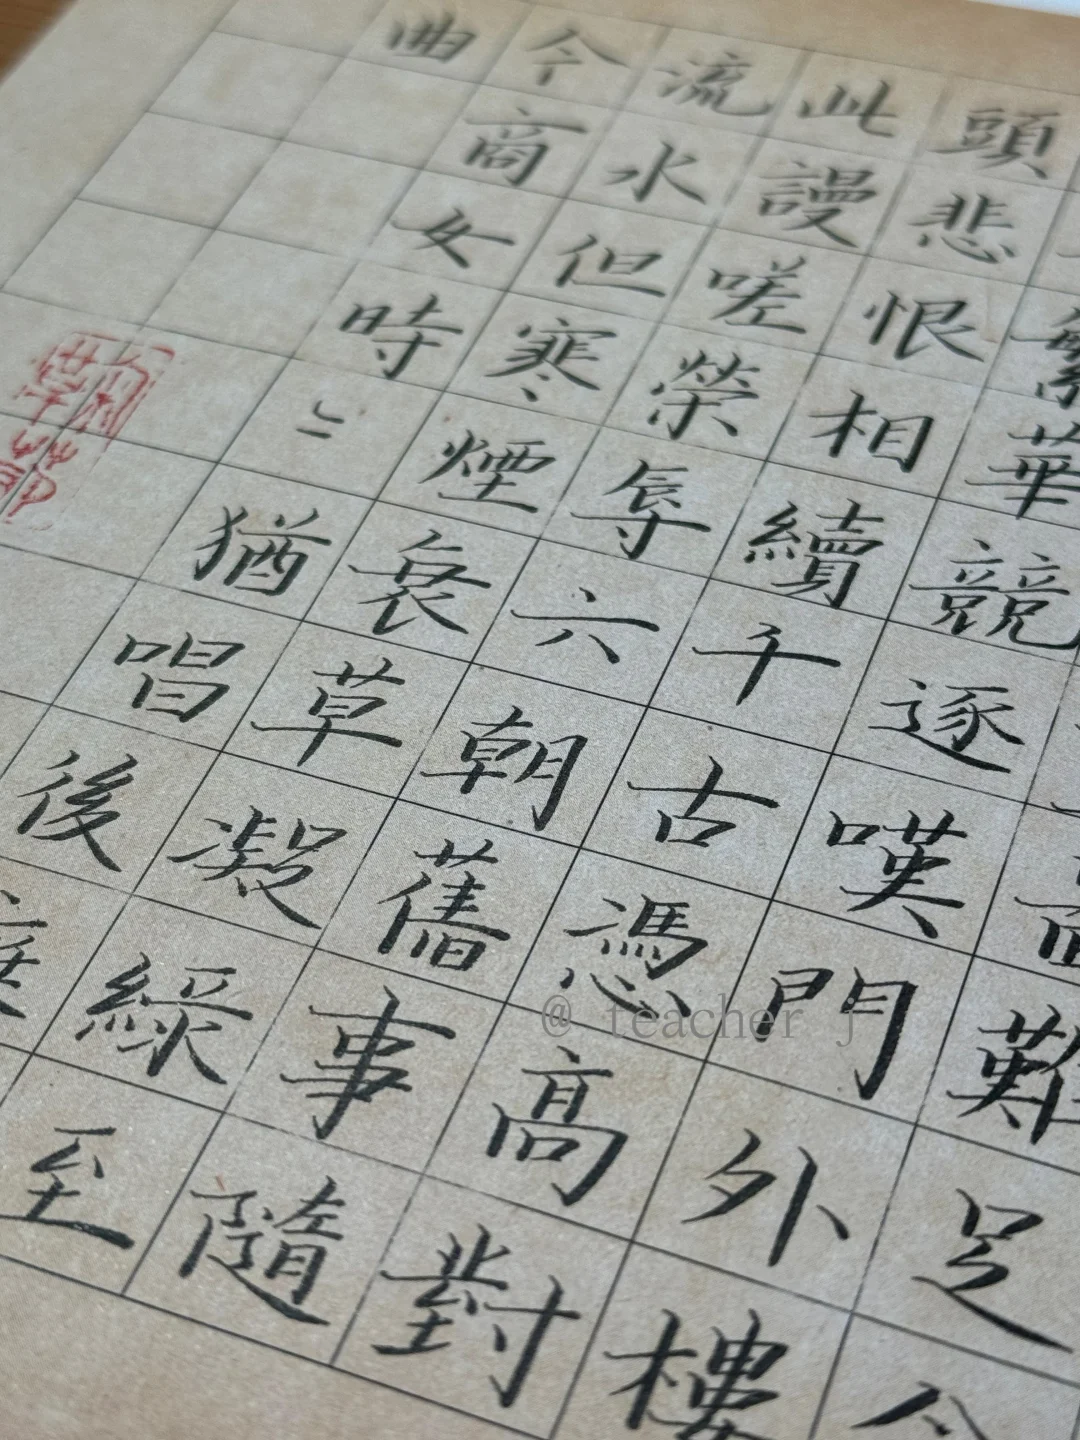 難足
繁華競逐嘆門外樓
頭悲恨相續千古憑高對
此謾嗟榮辱六朝舊事隨
流水但寒煙衰草凝綠至
今商女時〻猶唱後庭
曲
@ teacher j